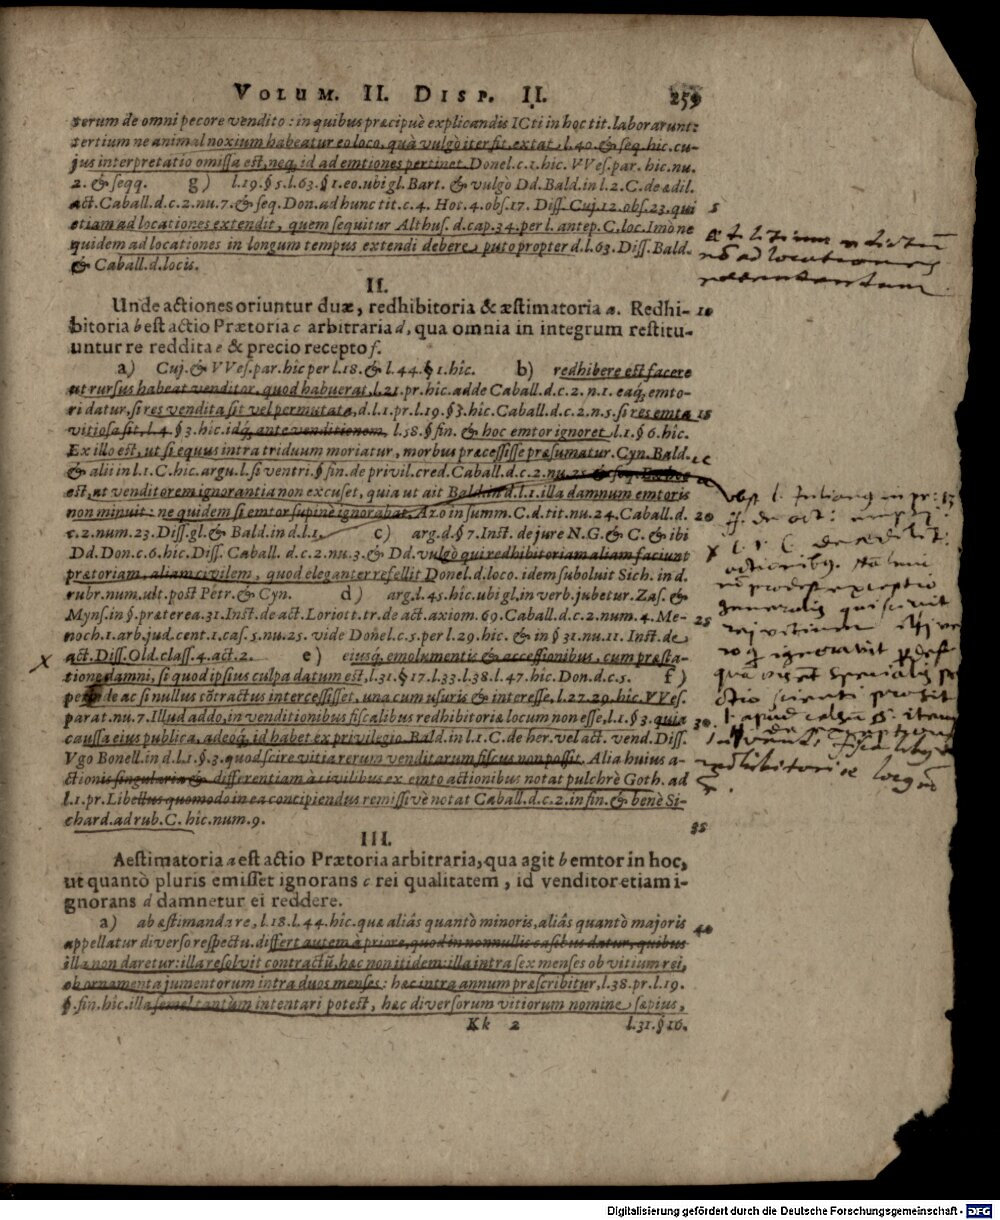 VOLUM. II. DISP. II. 259
terum de omni pecore vendito: in quibus præcipuè explicandis ICti in hoc tit. laborarunt:
tertium ne animal noxium habeatur eo loco, quà vulgò iter fit, extat l. 40. & seq. hîc. cu-
jus interpretatio omissa est, neq, id ad emtiones pertinet. Donel. c. 1. hîc. VVes. par. hîc. nu.
2. & seqq. g) l. 19. § 5. l. 63. § 1. eo. ubi gl. Bart. & vulgò Dd. Bald. in l. 2. C. de ædil.
act. Caball. d. c. 2. nu. 7. & seq. Don. ad hunc tit. c. 4. Hot. 4. obs. 17. Diss. Cuj. 12. obs. 23. qui 5
etiam ad locationes extendit, quem sequitur Althus. d. cap. 34. per l. antep. C. loc. Imò ne
quidem ad locationes in longum tempus extendi debere, puto propter d. l. 63. Diss. Bald.
& Caball. d. locis.
II.
Unde actiones oriuntur duæ, redhibitoria & æstimatoria a. Redhi- 10
bitoria b est actio Prætoria c arbitraria d, qua omnia in integrum restitu-
untur re reddita e & precio recepto f.
a) Cuj. & VVes. par. hîc per l. 18. & l. 44. § 1. hîc. b) redhibere est facere
ut rursus habeat venditor, quod habuerat, l. 21. pr. hîc. adde Caball. d. c. 2. n. 1. eaq, emto-
ri datur, si res vendita sit vel permutata, d. l. 1. pr. l. 19. § 3. hîc. Caball. d. c. 2. n. 5. si res emta 15
vitiosa sit, l. 4. § 3. hîc. idq, ante venditionem, l. 58. § fin. & hoc emtor ignoret l. 1. § 6. hîc.
Ex illo est, ut si equus intra triduum moriatur, morbus præcessisse præsumatur. Cyn. Bald.
& alii in l. 1. C. hîc. argu. l. si ventri. § fin. de privil. cred. Caball. d. c. 2. nu. 25. & seq.
est, ut venditorem ignorantia non excuset, quia ut ait Bald. in d. l. 1. illa damnum emtoris
non minuit: ne quidem si emtor supinè ignorabat. Azo in summ. C. d. tit. nu. 24. Caball. d. 20
c. 2. num. 23. Diss. gl. & Bald. in d. l. 1. c) arg. d. § 7. Inst. de jure N. G. & C. & ibi
Dd. Don. c. 6. hîc. Diss. Caball. d. c. 2. nu. 3. & Dd. vulgò qui redhibitoriam aliam faciunt
prætoriam, aliam civilem, quod eleganter refellit Donel. d. loco. idem suboluit Sich. in d.
rubr. num. ult. post Petr. & Cyn. d) arg. l. 45. hîc. ubi gl. in verb. jubetur. Zas. &
Myns. in § præterea. 31. Inst. de act. Loriott. tr. de act. axiom. 69. Caball. d. c. 2. num. 4. Me- 25
noch. 1. arb. jud. cent. 1. cas. 5. nu. 25. vide Donel. c. 5. per l. 29. hîc. & in § 31. nu. 11. Inst. de
act. Diss. Old. class. 4. act. 2. e) ejusq, emolumentis & accessionibus, cum præsta-
tione damni, si quod ipsius culpa datum est, l. 31. § 17. l. 33. l. 38. l. 47. hîc. Don. d. c. 5. f)
de ac si nullus cõtractus intercessisset, una cum usuris & interesse, l. 27. 29. hîc. VVes.
parat. nu. 7. Illud addo, in venditionibus fiscalibus redhibitoriæ locum non esse, l. 1. § 3. quia 30
caussa ejus publica, adeoq, id habet ex privilegio. Bald. in l. 1. C. de her. vel act. vend. Diss.
Vgo Bonell. in d. l. 1. §. 3. quod scire vitia rerum venditarum fiscus non possit. Alia hujus a-
ctionis singularia & differentiam à civilibus ex emto actionibus notat pulchrè Goth. ad
l. 1. pr. Libellus quomodo in ea concipiendus remissivè notat Caball. d. c. 2. in fin. & benè Si-
chard. ad rub. C. hîc. num. 9. 35
III.
Aestimatoria a est actio Prætoria arbitraria, qua agit b emtor in hoc,
ut quantò pluris emisset ignorans c rei qualitatem, id venditor etiam i-
gnorans d damnetur ei reddere.
a) ab æstimandâ re, l. 18. l. 44. hîc. quæ aliâs quantò minoris, aliâs quantò majoris 40
appellatur diverso respectu. differt autem à priore, quod in nonnullis casibus datur, quibus
illa non daretur: illa resolvit contractũ, hæc non itidem: illa intra sex menses ob vitium rei,
ob ornamenta jumentorum intra duos menses: hæc intra annum præscribitur, l. 38. pr. l. 19.
§. fin. hîc. illa semel tantùm intentari potest, hæc diversorum vitiorum nomine sæpius,
Kk 2 l. 31. § 16.
Digitalisierung gefördert durch die Deutsche Forschungsgemeinschaft - DFG